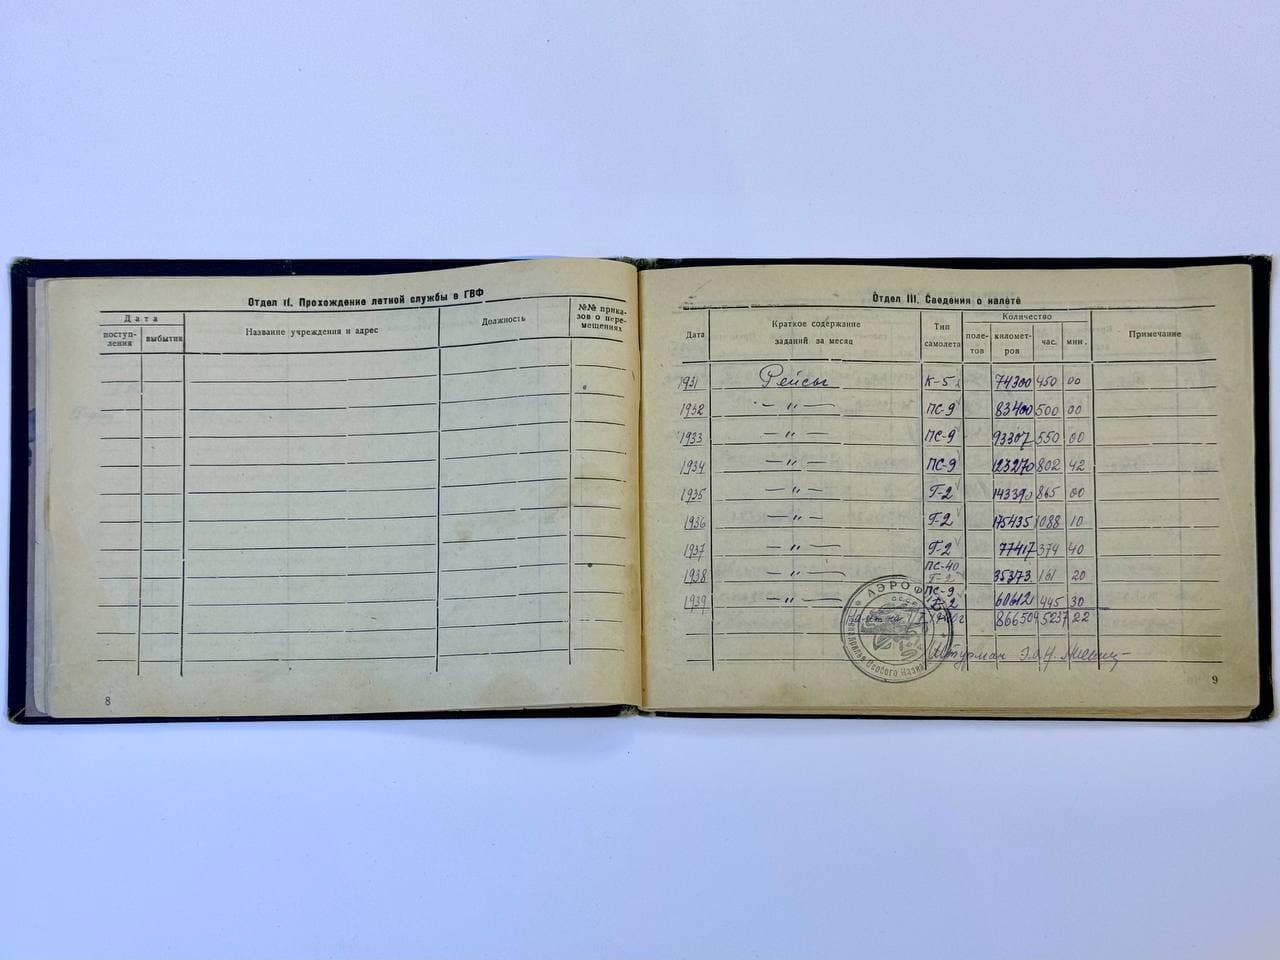 Отдел II. Прохождение летной службы в ГВФ
Дата
поступ-
ления
выбытия
Название учреждения и адрес
Должность
№№ прика-
зов о пере-
мещениях
8
Отдел III. Сведения о налёте
Дата
Краткое содержание
заданий за месяц
Тип
самолета
Количество
поле-
тов
километ-
ров
час.
мин.
Примечание
1931 Рейсы К-5 74300 450 00
1932 — " — ПС-9 83400 500 00
1933 — " — ПС-9 93307 550 00
1934 — " — ПС-9 123270 802 42
1935 — " — Г-2 143390 865 00
1936 — " — Г-2 175435 1088 10
1937 — " — Г-2 77417 374 40
ПС-40
1938 — " — Г-2 35373 161 20
ПС-9
1939 — " — Г-2 60612 445 30
866504 5237 22
АЭРОФЛОТ
СССР
Особого Назн
Штурман
9